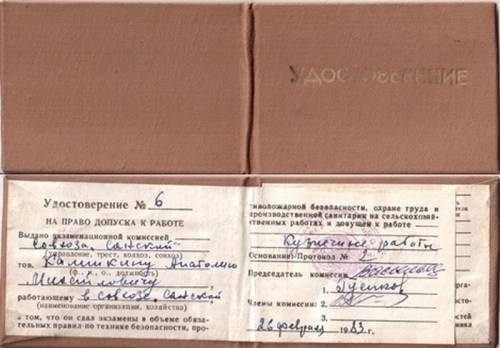 УДОСТОВЕРЕНИЕ
Удостоверение № 6
НА ПРАВО ДОПУСКА К РАБОТЕ
Выдано экзаменационной комиссией
совхоза
(управление, трест, колхоз, совхоз)
тов. Калинкину Анатолию
(ф., и., о., должность)
работающему в совхозе
(наименование организации, хозяйства)
в том, что он сдал экзамены в объеме обяза-
тельных правил по технике безопасности, про-
тивопожарной безопасности, охране труда и
производственной санитарии на сельскохозяй-
ственных работах и допущен к работе
Кузнечные работы
Основание: Протокол № 2
Председатель комиссии
Члены комиссии: 1.
2.
26 февраля 1983 г.